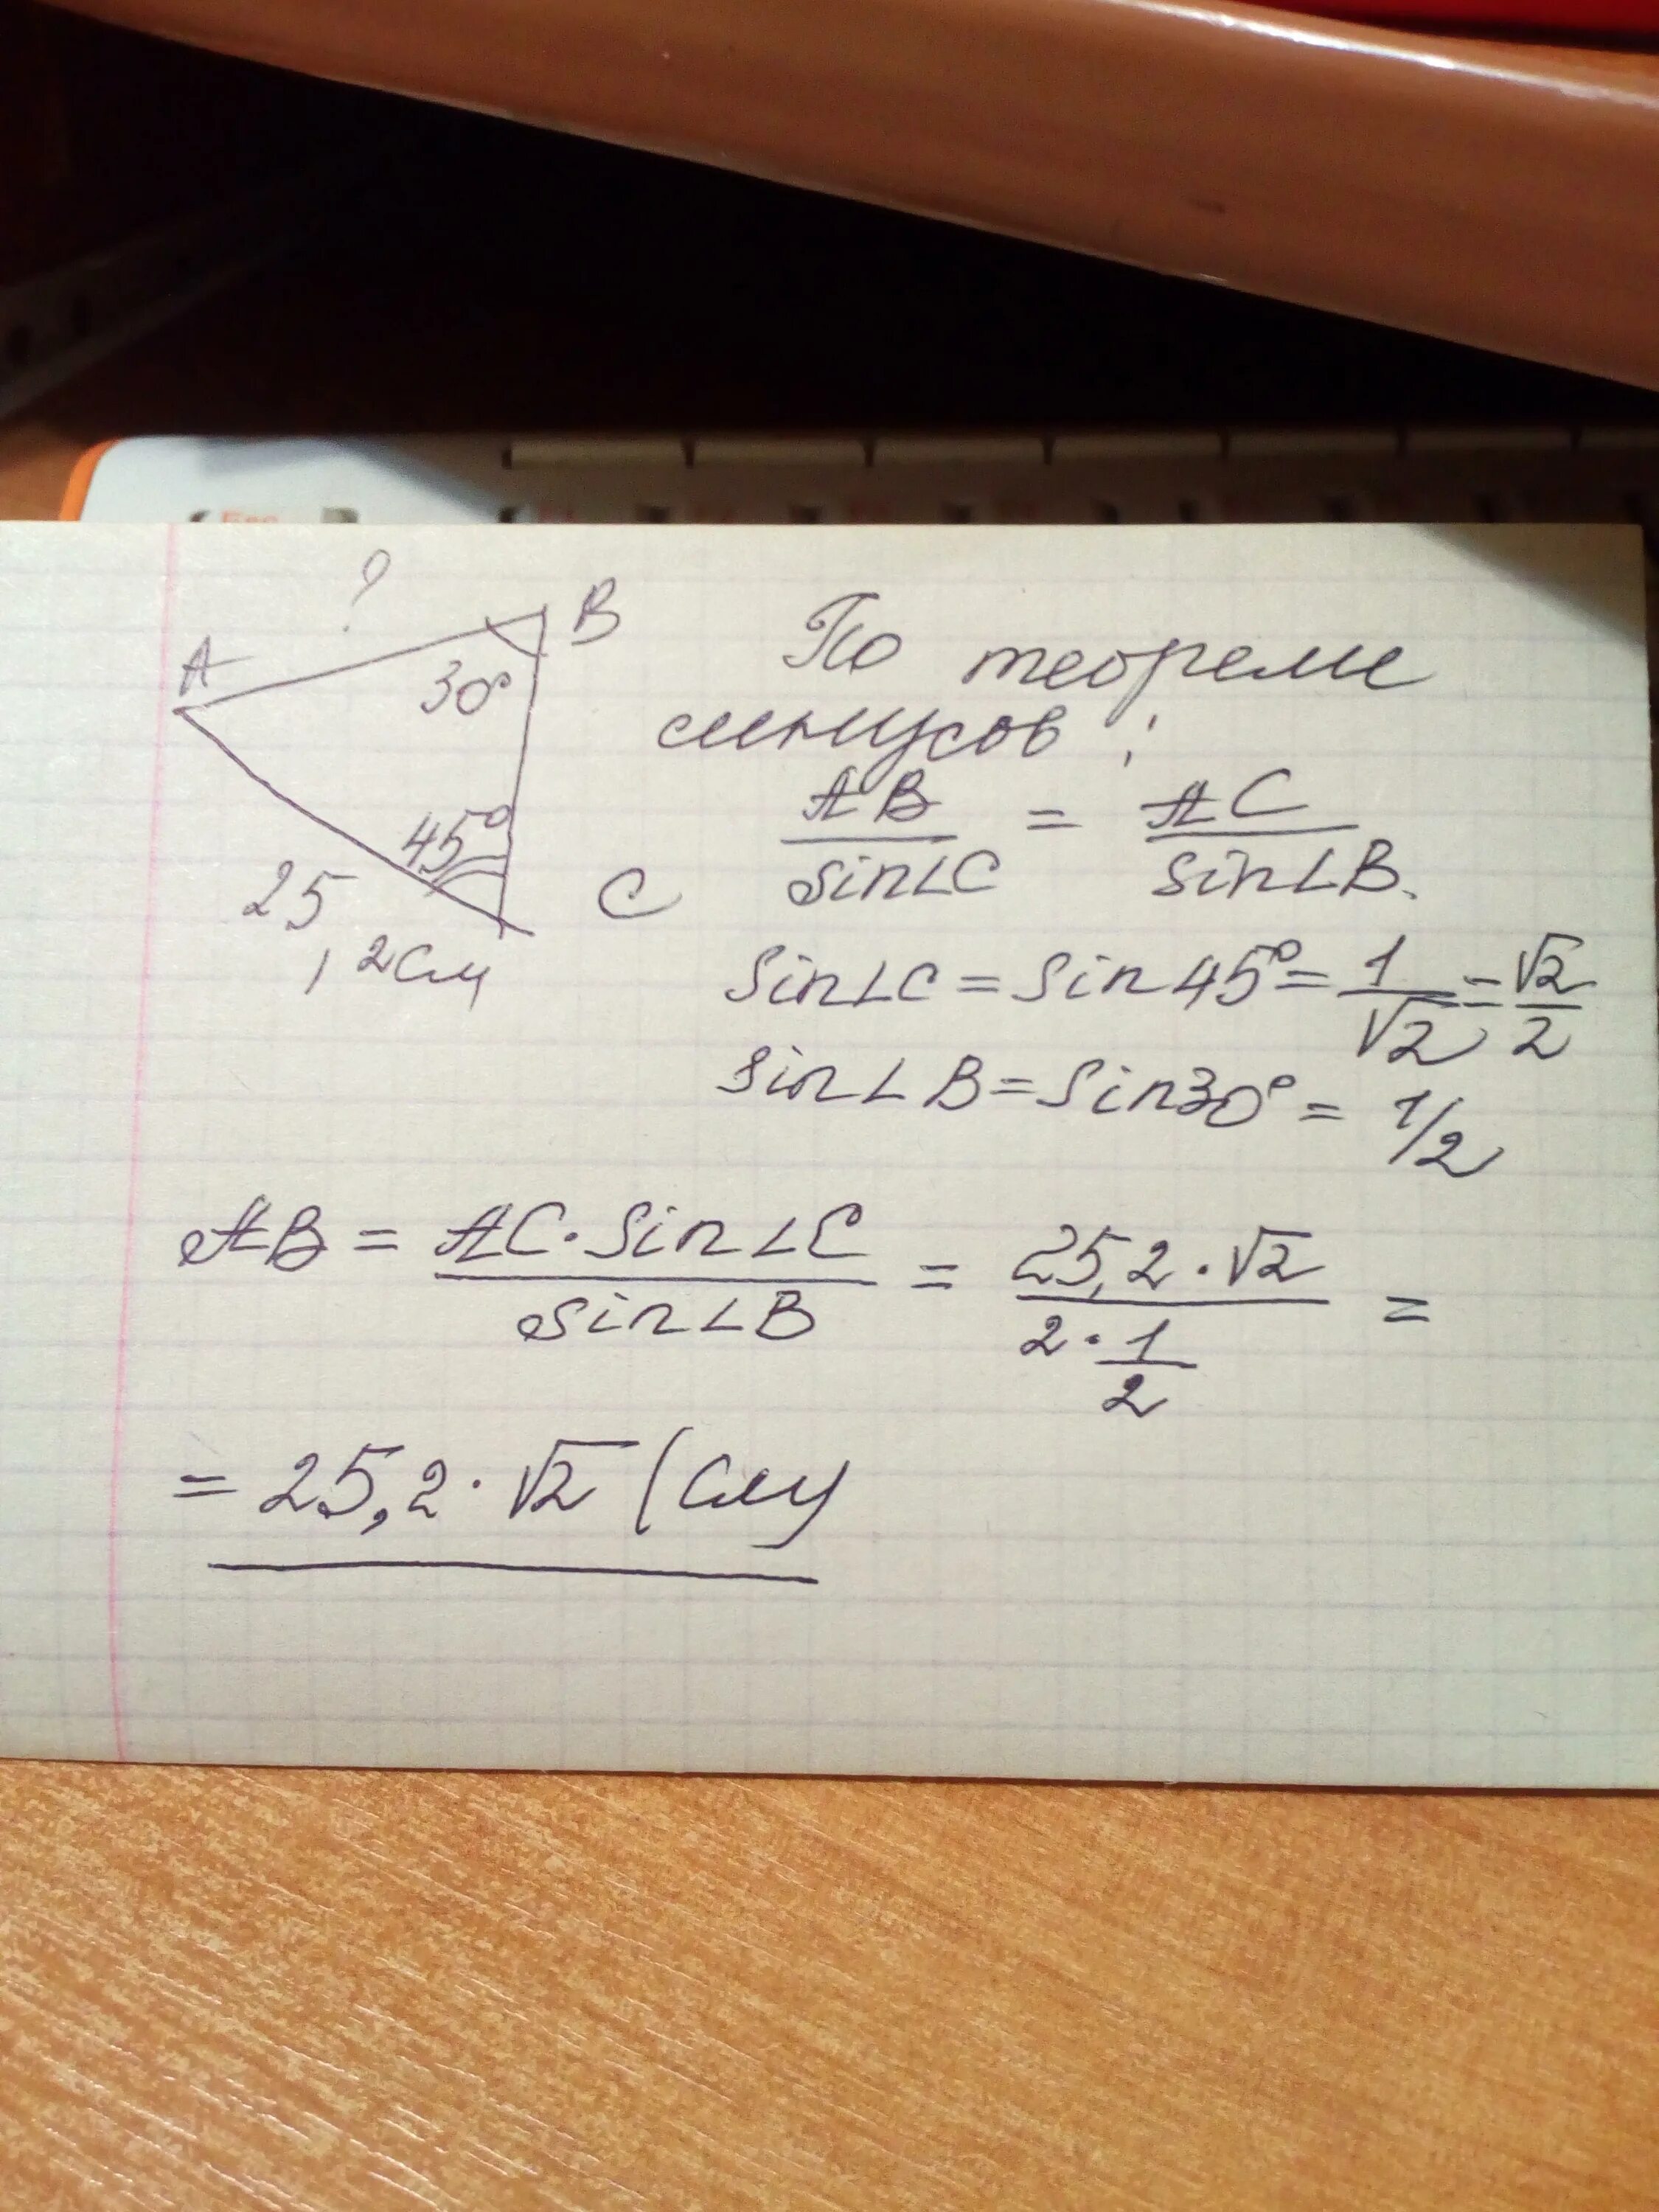 ?
A
B
30°
45°
25
,2см
C
По теореме
синусов:
AB/sin∠C = AC/sin∠B.
sin∠C = sin45° = 1/√2 = √2/2
sin∠B = sin30° = 1/2
AB = AC·sin∠C/sin∠B = 25,2·√2/2·1/2 =
= 25,2·√2 (см)